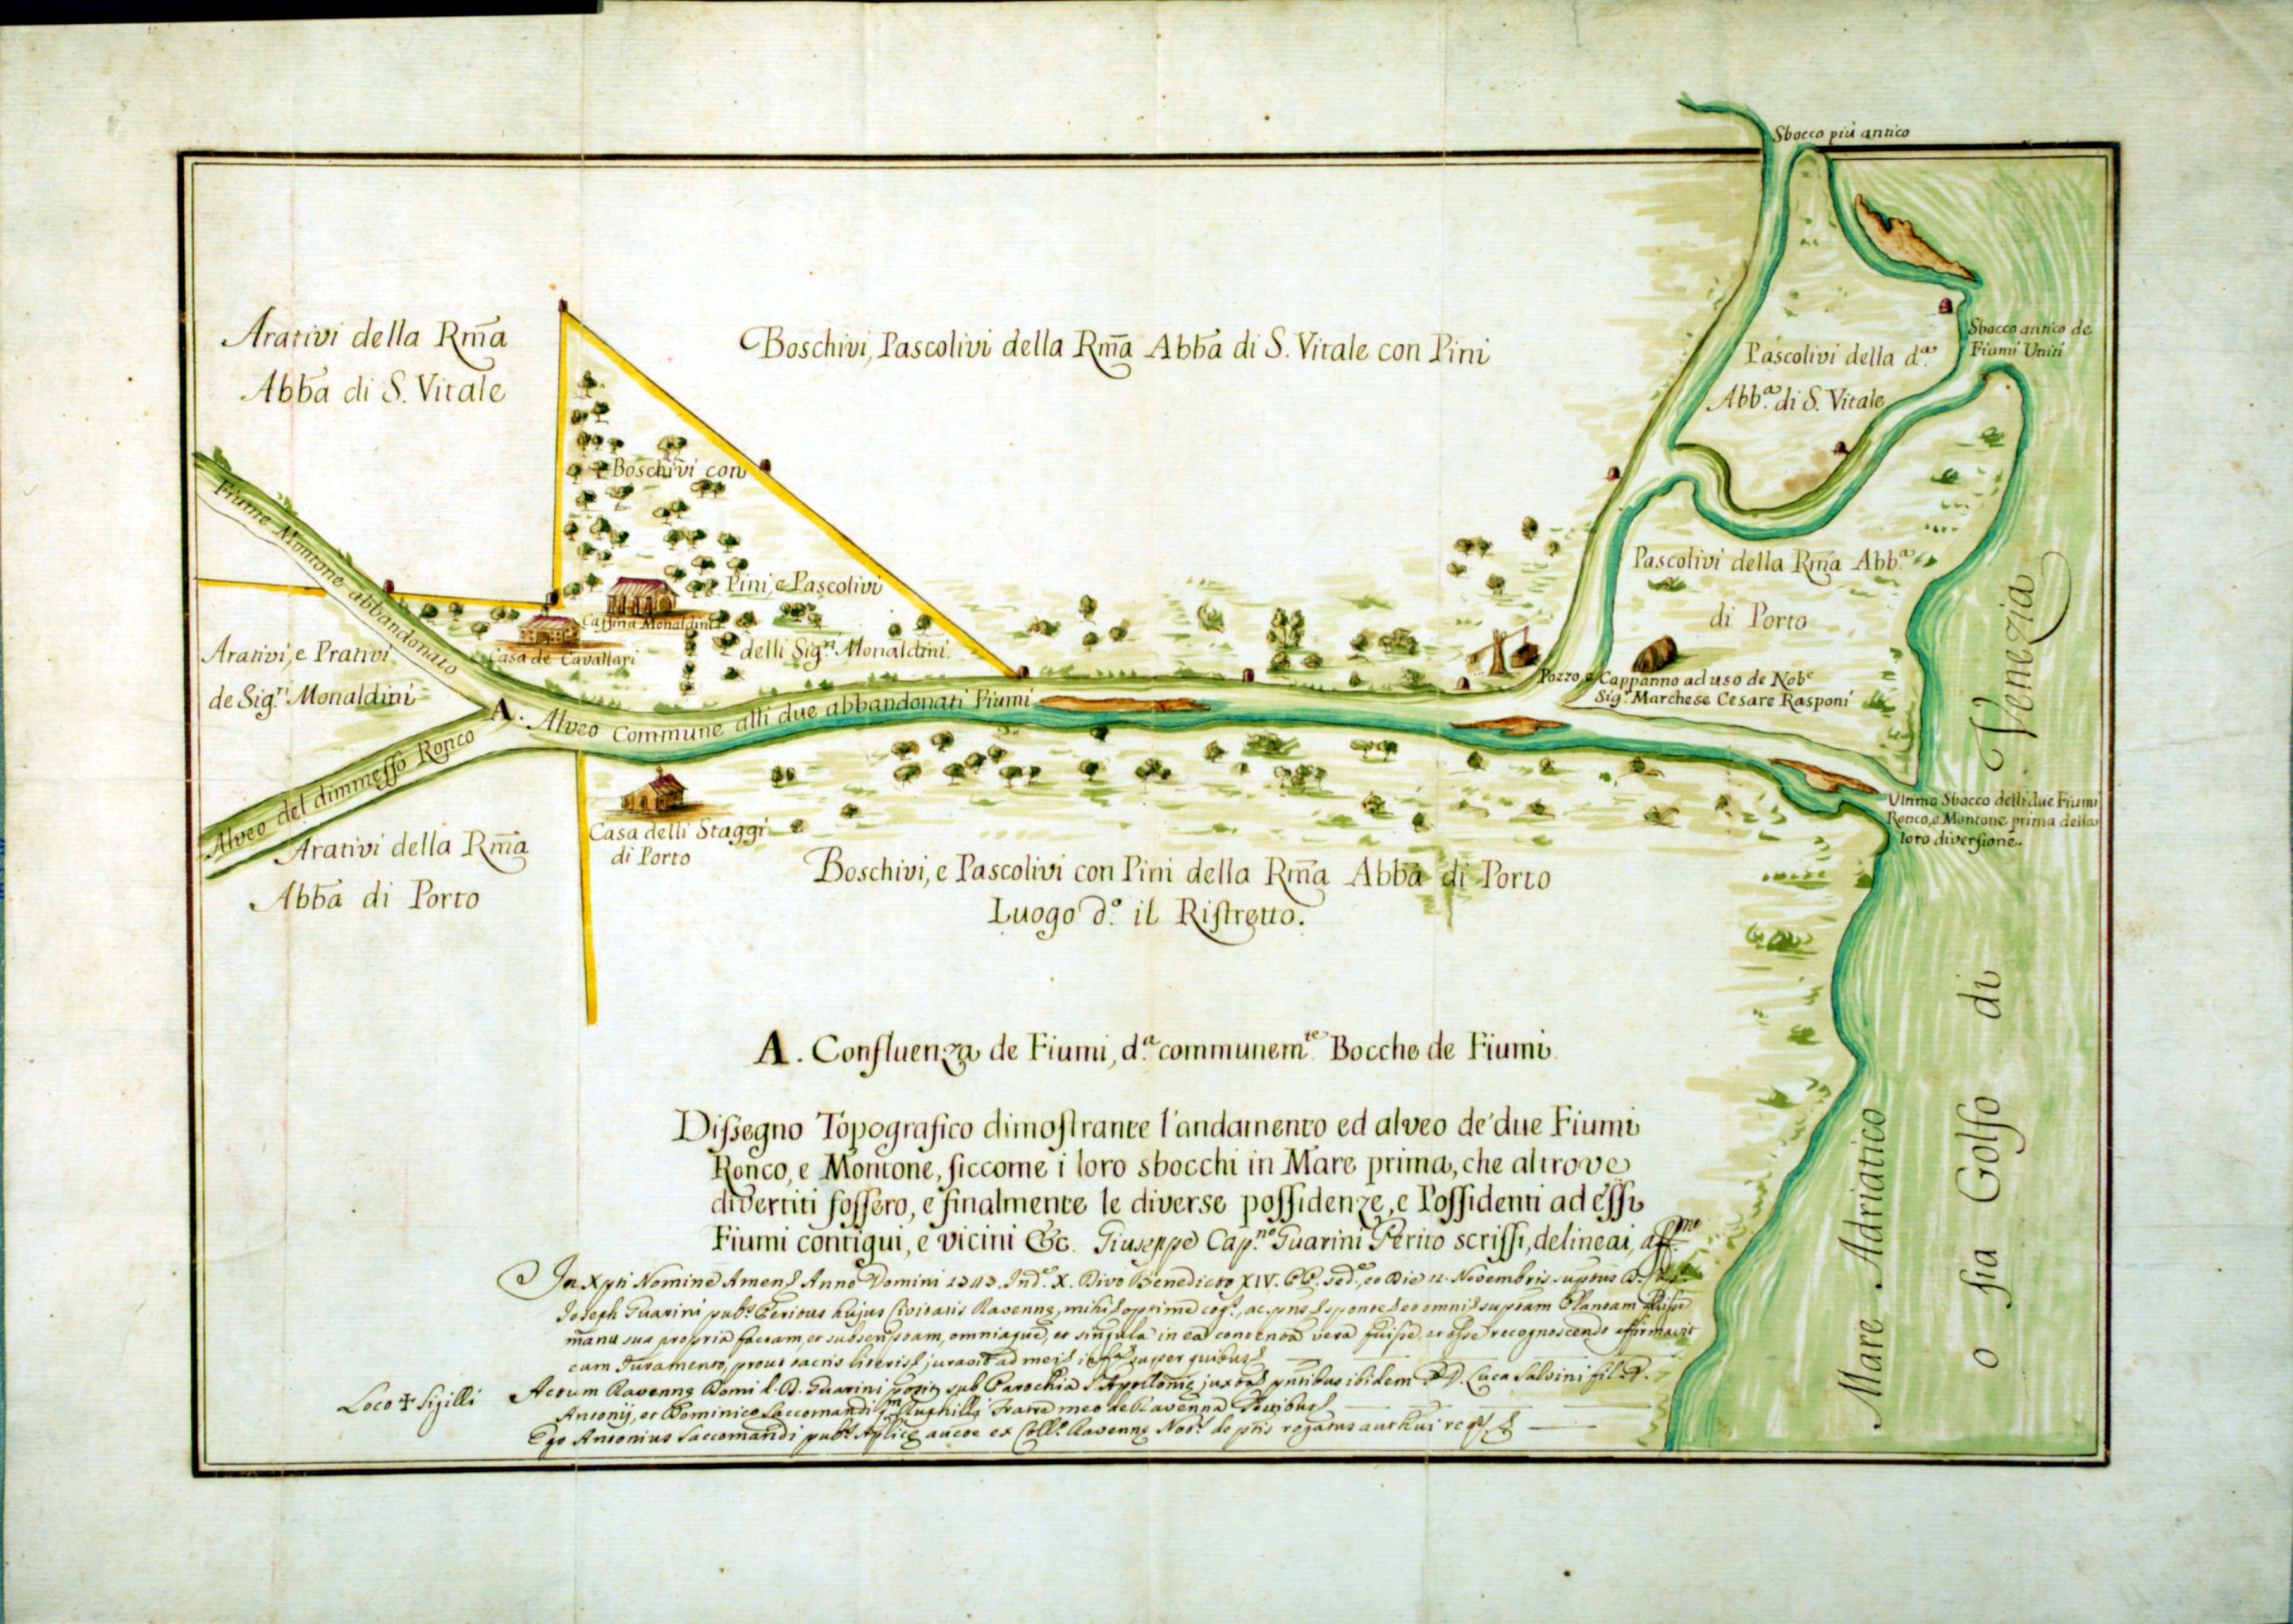 Sbocco più antico
Arativi della Rm̃a
Abb̃a di S. Vitale
Boschivi, Pascolivi della Rm̃a Abb̃a di S. Vitale con Pini
Sbocco antico de
Fiumi Uniti
Pascolivi della d.ª
Abb.ª di S. Vitale
Boschivi con
Pini, e Pascolivi
delli Sig.ri Monaldini
Fiume Montone abbandonato
Cassina Monaldini
Casa de Cavallari
Arativi, e Prativi
de Sig.ri Monaldini
Pascolivi della Rm̃a Abb.ª
di Porto
Pozzo, e Cappanno ad uso de Nob.e
Sig.r Marchese Cesare Rasponi
A. Alveo Commune alli due abbandonati Fiumi
Alveo del dimmesso Ronco
Ultimo Sbocco delli due Fiumi
Ronco, e Montone prima della
loro diversione.
Casa delli Staggi
di Porto
Arativi della Rm̃a
Abb̃a di Porto
Boschivi, e Pascolivi con Pini della Rm̃a Abb̃a di Porto
Luogo d.º il Ristretto.
Mare Adriatico
o sia Golfo di Venezia
A. Confluenza de Fiumi, d.ª communem.te Bocche de Fiumi
Dissegno Topografico dimostrante l'andamento ed alveo de' due Fiumi
Ronco, e Montone, siccome i loro sbocchi in Mare prima, che altrove
divertiti fossero, e finalmente le diverse possidenze, e Possidenti ad essi
Fiumi contigui, e vicini &c. Giuseppe Cap.no Guarini Perito scrissi, delineai, aff.mo
In Xpti Nomine Amen Anno Domini 1743. Ind.e X. Divo Benedicto XIV. PP. sed.e, eo Die Novembris
Joseph Guarini pub.s Peritus hujus Civitatis Ravennę, mihi optime cog.s, ac sponte omni Plantam
manu sua propria factam, et subscriptam, omniaque, et singula in ea contenta vera fuisse, et esse recognoscendo affirmavit
cum Juramento, prout tactis literis juravit ad super quibus
Actum Ravennę Domi Guarini sub Parochia S. Apollonię ibidem DD. Luca Salvini fil.
Antonij, et Dominico Saccomandi Fratre meo de Ravenna Testibus
Loco ✝ Sigilli
Ego Antonius Saccomandi pub.s ex Coll.º Ravennę Not.s de rogatus